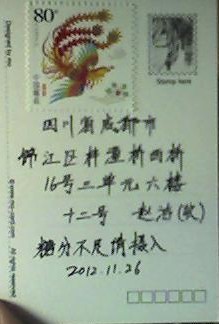 80分
中国邮政
Stamp here
四川省成都市
锦江区梓潼桥西街
16号三单元六楼
十二号 赵浩(收)
糖分不足请摄入
2012.11.26